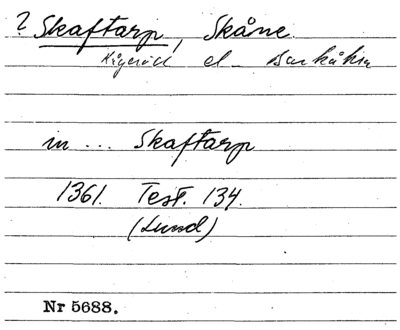 ? Skaftarp, Skåne
Kågeröd el. Barkåkra
in ... Skaftarp
1361. Test. 134.
(Lund)
Nr 5688.